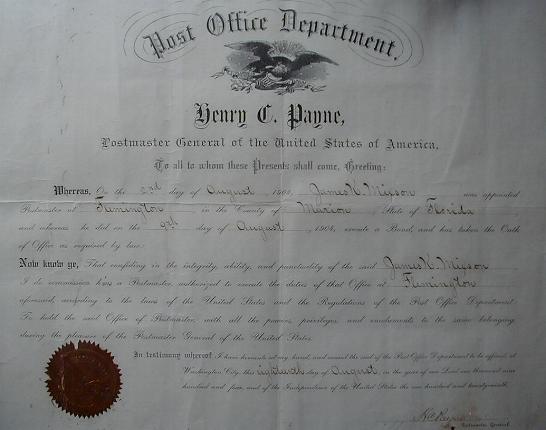 Post Office Department.
Henry C. Payne,
Postmaster General of the United States of America,
To all to whom these Presents shall come, Greeting:
Whereas, On the 23d day of August, 1904, James K. Mixson was appointed
Postmaster at Flemington in the County of Marion, State of Florida
and whereas he did on the 9th day of August, 1904, execute a Bond, and has taken the Oath
of Office as required by law:
Now know ye, That confiding in the integrity, ability, and punctuality of the said James K. Mixson
I do commission him a Postmaster, authorized to execute the duties of that Office at Flemington
aforesaid, according to the laws of the United States and the Regulations of the Post Office Department:
To hold the said Office of Postmaster, with all the powers, privileges, and emoluments to the same belonging,
during the pleasure of the Postmaster General of the United States.
In testimony whereof I have hereunto set my hand, and caused the seal of the Post Office Department to be affixed, at
Washington City, this eighteenth day of August, in the year of our Lord one thousand nine
hundred and four, and of the Independence of the United States the one hundred and twenty-ninth.
H C Payne
Postmaster General